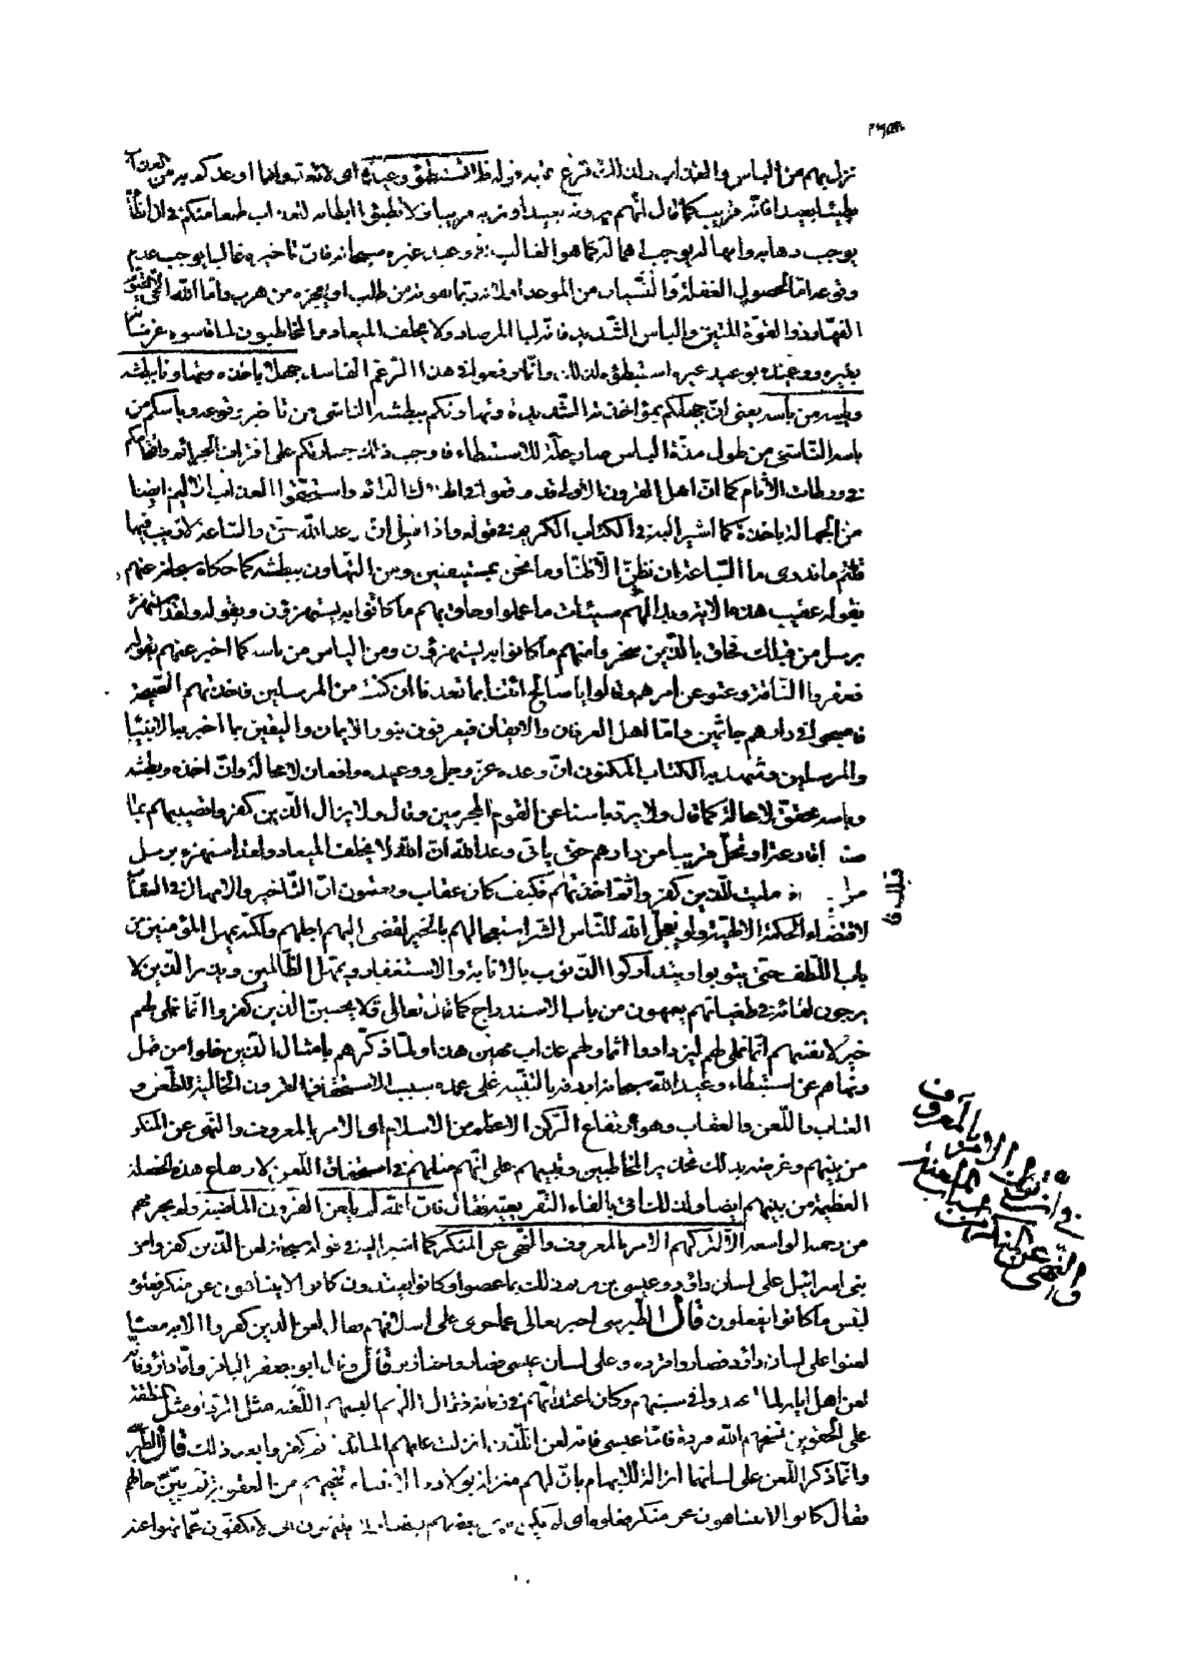 نزل بهم من الباس والعذاب ولذلك فرّع عليه قوله فلا تستبطئوا وعيده اى لا تعدّوا ما اوعدكم به من العذاب
بطيئا بعيدا فانّه قريب كما قال انّهم يرونه بعيدا ونريه قريبا
يوجب ذهابه وامهاله يوجب اهماله كما هو الغالب فى وعيد غيره سبحانه فانّ تاخيره غالبا يوجب عدم
وقوعه امّا لحصول الغفلة والنّسيان من الموعد او لانّه ربّما يفوته من طلب او يعجزه من هرب وامّا اللّه الحىّ القيّوم
القهّار ذو القوّة المتين والباس الشّديد فانّه لبا المرصاد ولا يخلف الميعاد والمخاطبون لمّا قاسوه عزّ شانه
بغيره ووعيده بوعيد غيره استبطؤه لذلك وانّما وقعوا فى هذا الزّعم الفاسد جهلا باخذه وتهاونا ببطشه
وياسا من باسه يعنى انّ جهلكم بمؤاخذته الشّديدة وتهاونكم ببطشه النّاشى من تاخير وقوعه وياسكم من
باسه النّاشى من طول مدّة الباس صار علّة للاستبطاء فاوجب ذلك جسارتكم على اقتراف الجرائم واقتحامكم
فى ورطات الآثام كما انّ اهل القرون الاولى قد وقعوا فى واستحقّوا العذاب الاليم ايضا
من الجهالة باخذه كما اشير اليه فى الكتاب الكريم فى قوله واذا قيل انّ وعد اللّه حقّ والسّاعة لا ريب فيها
قلتم ما ندرى ما السّاعة ان نظنّ الّا ظنّا وما نحن بمستيقنين ومن التهاون ببطشه كما حكاه سبحانه عنهم
بقوله عقيب هذه الاية وبدا لهم سيّئات ما عملوا وحاق بهم ما كانوا به يستهزؤن وبقوله ولقد استهزئ
برسل من قبلك فحاق بالّذين سخروا منهم ما كانوا به يستهزؤن ومن الياس من باسه كما اخبر عنهم بقوله
فعقروا النّاقة وعتوا عن امر ربهم وقالوا يا صالح ائتنا بما تعدنا ان كنت من المرسلين فاخذتهم الصّيحة
فاصبحوا فى دارهم جاثمين وامّا اهل العرفان والايقان فيعرفون بنور الايمان واليقين بما اخبر به الانبياء
والمرسلين وشهد به الكتاب المكنون انّ وعده عزّ وجلّ ووعيده واقعان لا محالة وانّ اخذه وبطشه
وباسه محقّق لا محالة كما قال ولا يردّ باسنا عن القوم المجرمين وقال ولا يزال الّذين كفروا تصيبهم بما
صنعوا قارعة او تحلّ قريبا من دارهم حتى ياتى وعد اللّه انّ اللّه لا يخلف الميعاد ولقد استهزء برسل
من فامليت للّذين كفروا ثمّ اخذتهم فكيف كان عقاب ويعلمون انّ التّاخير والامهال فى العقاب
لاقتضاء الحكمة الالهيّة ولو يعجّل اللّه للنّاس الشّرّ استعجالهم بالخير لقضى اليهم اجلهم ولكنّه يمهل المؤمنين من
باب اللّطف حتى يتوبوا ويتداركوا الذّنوب بالانابة والاستغفار ويمهل الظّالمين ويذر الّذين لا
يرجون لقائه فى طغيانهم يعمهون من باب الاستدراج كما قال تعالى فلا يحسبنّ الّذين كفروا انّما نملى لهم
خير لانفسهم انّما نملى لهم ليزدادوا اثما ولهم عذاب مهين هذا ولمّا ذكّرهم بامثال الّذين خلوا من قبل
ونهاهم عن استبطاء وعيد اللّه سبحانه اردفه بالتّنبيه على عمدة سبب الاستحقاق القرون الخالية للطّعن و
العذاب واللّعن والعقاب وهو ارتفاع الرّكن الاعظم من الاسلام اى الامر بالمعروف والنّهى عن المنكر
من بينهم وغرضه بذلك تحذير المخاطبين وتنبيههم على انّهم مثلهم فى استحقاق اللّعن لارتفاع هذه الخصلة
العظيمة من بينهم ايضا ولذلك اتى بالفاء التّفريعيّة فقال فانّ اللّه لم يلعن القرون الماضية ولم يحرمهم
من رحمته الواسعة الّا لتركهم الامر بالمعروف والنّهى عن المنكر كما اشير اليه فى قوله سبحانه لعن الّذين كفروا من
بنى اسرائيل على لسان داود وعيسى بن مريم ذلك بما عصوا وكانوا يعتدون كانوا لا يتناهون عن منكر فعلوه
لبئس ما كانوا يفعلون قال الطّبرسى اخبر تعالى عمّا جرى على اسلافهم فقال لعن الّذين كفروا الاية معناه
لعنوا على لسان داود فصاروا قردة وعلى لسان عيسى فصاروا خنازير قال وقال ابو جعفر الباقر وامّا داود فانّه
لعن اهل ايلة لمّا اعتدوا فى سبتهم وكان اعتداؤهم فى زمانه فقال اللّهم البسهم اللّعنة مثل الرّداء ومثل المنطقة
على الحقوين فمسخهم اللّه قردة فامّا عيسى فانّه لعن الّذين انزلت عليهم المائدة ثم كفروا بعد ذلك قال الطّبرسى
وانّما ذكر اللّعن على لسانهما ازالة للايهام بانّ لهم منزلة بولادة الانبياء تنجيهم من العقوبة ثمّ بيّن حالهم
فقال كانوا لا يتناهون عن منكر فعلوه اى لم يكن ينهى بعضهم بعضا ولا ينتهون اى لا يكفّون عمّا نهوا عنه
قبلك